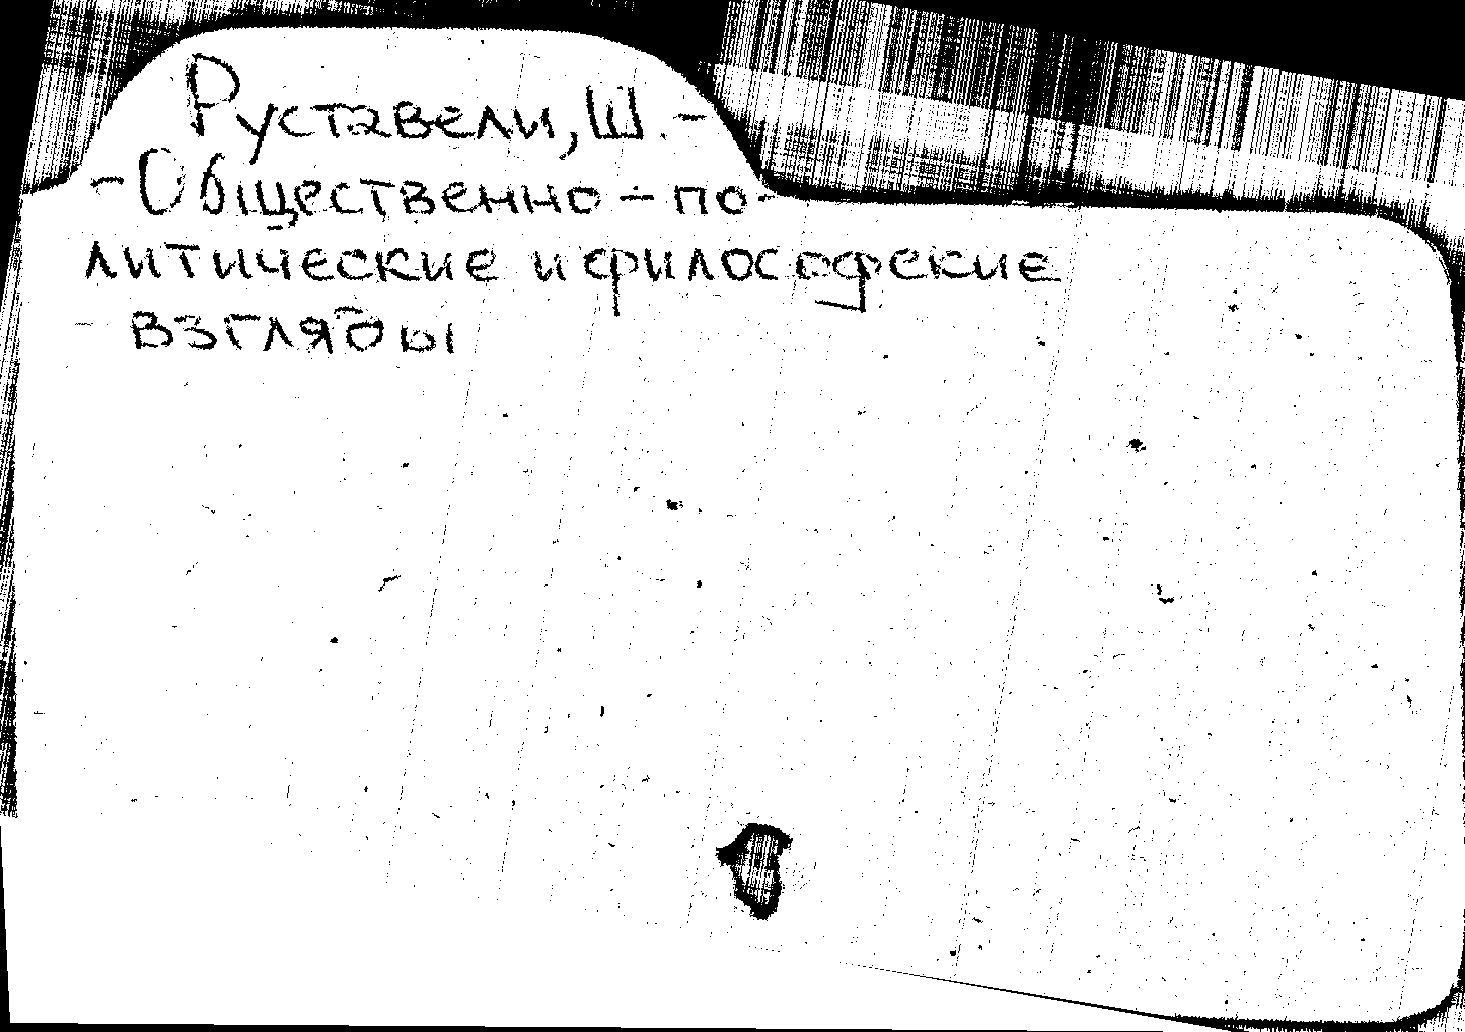 Руставели, Ш. -
- Общественно - по-
литические и философские
взгляды